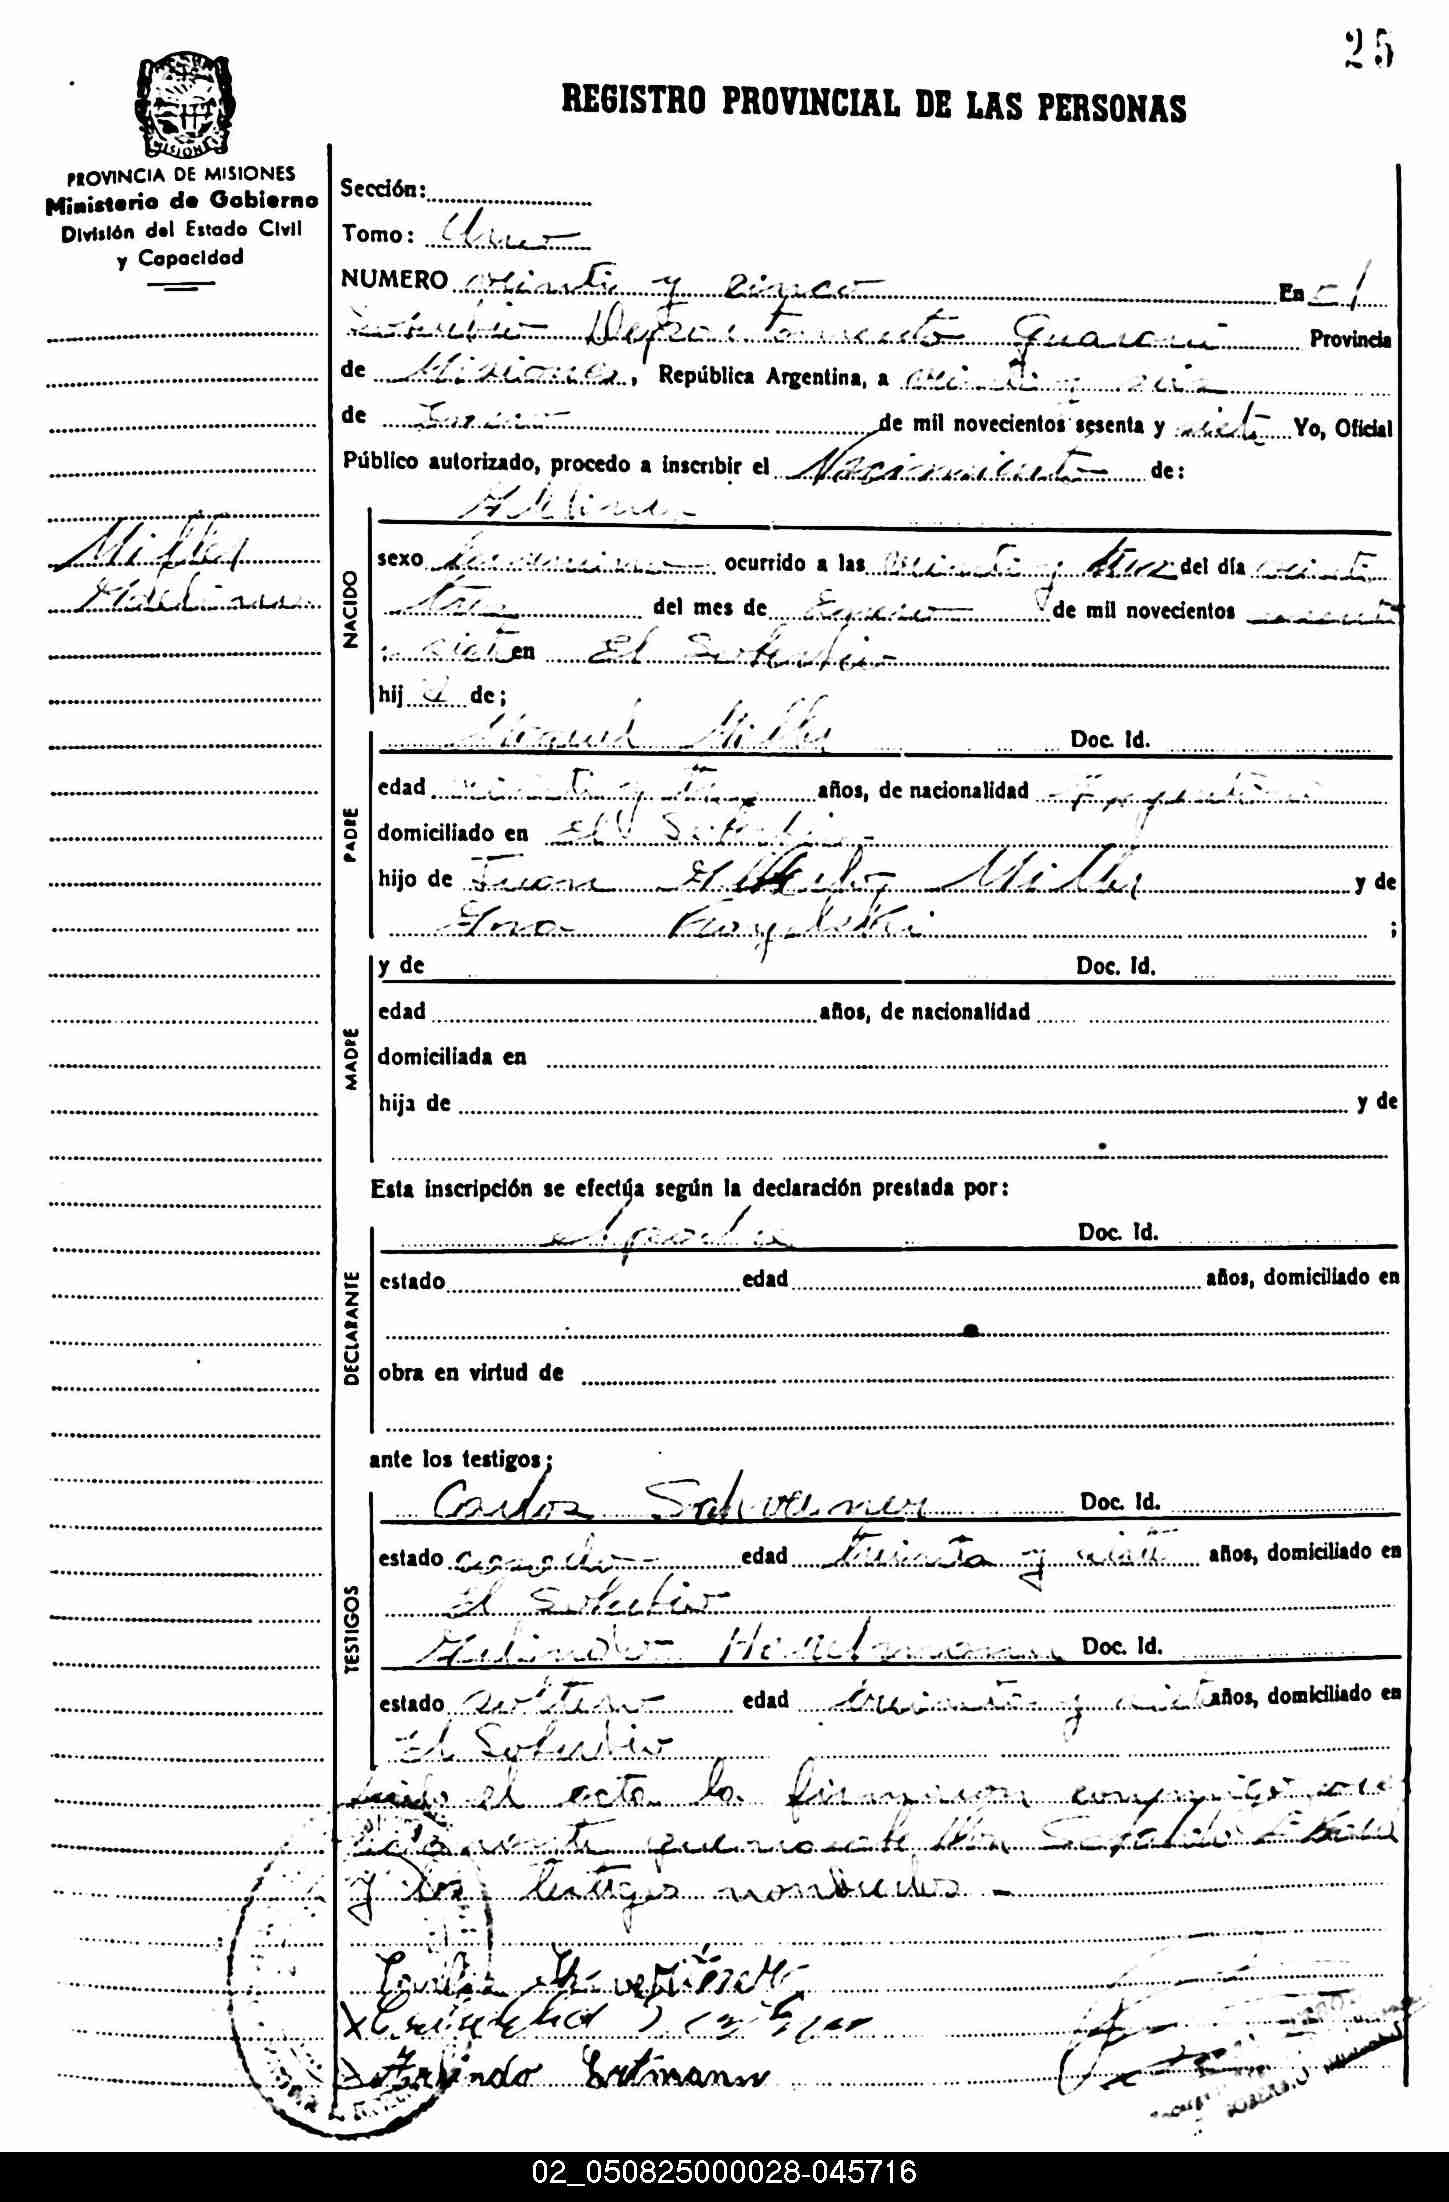 25
REGISTRO PROVINCIAL DE LAS PERSONAS
PROVINCIA DE MISIONES
Ministerio de Gobierno
División del Estado Civil
y Capacidad
Sección:
Tomo: Uno
NUMERO veinti y cinco En El
Soberbio Departamento Guarani Provincia
de Misiones, República Argentina, a veinti y seis
de Enero de mil novecientos sesenta y siete Yo, Oficial
Público autorizado, procedo a inscribir el Nacimiento de:
Miller
NACIDO
sexo femenino ocurrido a las veinti y tres del día veinti
tres del mes de Enero de mil novecientos sesenta
y siete en El Soberbio
hija de;
PADRE
Miguel Miller Doc. Id.
edad veinti y años, de nacionalidad Argentina
domiciliado en El Soberbio
hijo de Juan Miller y de
Ana ;
MADRE
y de Doc. Id.
edad años, de nacionalidad
domiciliada en
hija de y de
Esta inscripción se efectúa según la declaración prestada por:
DECLARANTE
el padre Doc. Id.
estado edad años, domiciliado en
obra en virtud de
ante los testigos;
TESTIGOS
Carlos Doc. Id.
estado casado edad treinta y siete años, domiciliado en
El Soberbio
Doc. Id.
estado soltero edad treinta y siete años, domiciliado en
El Soberbio
Leido el acta la firman conmigo
y los testigos nombrados.-
Carlos
Arlindo Ertmann
02_050825000028-045716